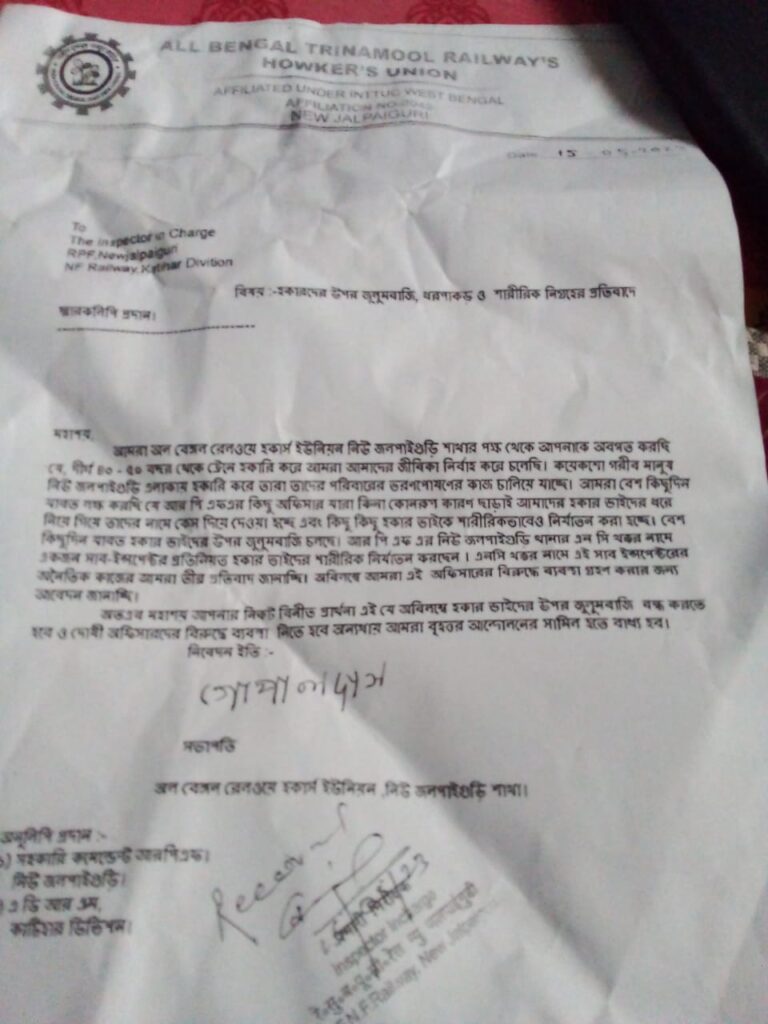 ALL BENGAL TRINAMOOL RAILWAY'S
HOWKER'S UNION
AFFILIATED UNDER INTTUC WEST BENGAL
AFFILIATION NO.
NEW JALPAIGURI
Date 15
To
The Inspector in Charge
RPF,Newjalpaiguri
NF Railway,Katihar Divition
বিষয় :-হকারদের উপর জুলুমবাজি, ধরপাকড় ও শারীরিক নিগ্রহের প্রতিবাদে
স্মারকলিপি প্রদান।
মহাশয়,
আমরা অল বেঙ্গল রেলওয়ে হকার্স ইউনিয়ন নিউ জলপাইগুড়ি শাখার পক্ষ থেকে আপনাকে অবগত করছি
যে, দীর্ঘ ৪০ - ৫০ বছর থেকে ট্রেনে হকারি করে আমরা আমাদের জীবিকা নির্বাহ করে চলেছি। কয়েকশো গরীব মানুষ
নিউ জলপাইগুড়ি এলাকায় হকারি করে তারা তাদের পরিবারের ভরণপোষণের কাজ চালিয়ে যাচ্ছে। আমরা বেশ কিছুদিন
যাবত লক্ষ করছি যে আর পি এফএর কিছু অফিসার যারা কিনা কোনরূপ কারণ ছাড়াই আমাদের হকার ভাইদের ধরে
নিয়ে গিয়ে তাদের নামে কেস দিয়ে দেওয়া হচ্ছে এবং কিছু কিছু হকার ভাইকে শারীরিকভাবেও নির্যাতন করা হচ্ছে। বেশ
কিছুদিন যাবত হকার ভাইদের উপর জুলুমবাজি চলছে। আর পি এফ এর নিউ জলপাইগুড়ি থানার এন পি থক্কর নামে
একজন সাব-ইন্সপেক্টর প্রতিনিয়ত হকার ভাইদের শারীরিক নির্যাতন করছেন । এনপি থক্কর নামে এই সাব ইন্সপেক্টরের
অনৈতিক কাজের আমরা তীব্র প্রতিবাদ জানাচ্ছি। অবিলম্বে আমরা এই অফিসারের বিরুদ্ধে ব্যবস্থা গ্রহণ করার জন্য
আবেদন জানাচ্ছি।
অতএব মহাশয় আপনার নিকট বিনীত প্রার্থনা এই যে অবিলম্বে হকার ভাইদের উপর জুলুমবাজি বন্ধ করতে
হবে ও দোষী অফিসারদের বিরুদ্ধে ব্যবস্থা নিতে হবে অন্যথায় আমরা বৃহত্তর আন্দোলনের সামিল হতে বাধ্য হব।
নিবেদন ইতি :-
গোপাল দাস
সভাপতি
অল বেঙ্গল রেলওয়ে হকার্স ইউনিয়ন ,নিউ জলপাইগুড়ি শাখা।
অনুলিপি প্রদান :-
১) সহকারি কমেন্ডেন্ট আরপিএফ।
নিউ জলপাইগুড়ি।
) এ ডি আর এম,
কাটিহার ডিভিশন।
Received
Inspector Incharge
N.F.Railway, New Jalpaiguri